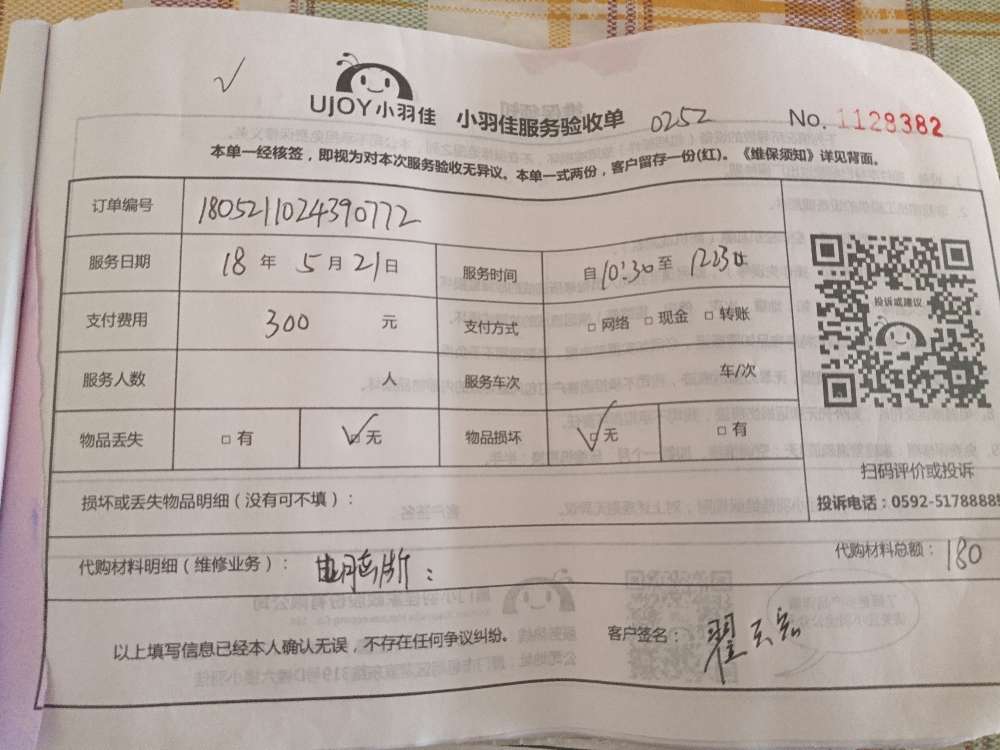 ✓
UJOY小羽佳 小羽佳服务验收单 0252 No.1128382
本单一经核签，即视为对本次服务验收无异议。本单一式两份，客户留存一份(红)。《维保须知》详见背面。
订单编号 1805211024390772
服务日期 18 年 5 月 21 日 服务时间 自 10:30 至 1223
支付费用 300 元 支付方式 □ 网络 □ 现金 □ 转账
投诉或建议
服务人数 人 服务车次 车/次
物品丢失 □ 有 ☑ 无 物品损坏 ☑ 无 □ 有
扫码评价或投诉
损坏或丢失物品明细（没有可不填）： 投诉电话：0592-5178888
代购材料明细（维修业务）： 代购材料总额： 180
以上填写信息已经本人确认无误，不存在任何争议纠纷。 客户签名： 翟玉